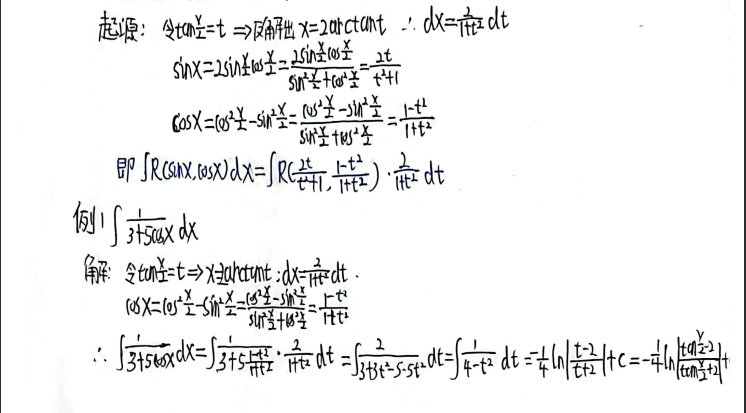 起源：令tan x/2=t ⇒反解出 x=2arctant ∴ dx=2/(1+t²) dt
sinx=2sin x/2 cos x/2=(2sin x/2 cos x/2)/(sin² x/2+cos² x/2)=2t/(t²+1)
cosx=cos² x/2-sin² x/2=(cos² x/2-sin² x/2)/(sin² x/2+cos² x/2)=(1-t²)/(1+t²)
即 ∫R(sinx,cosx)dx=∫R(2t/(t²+1), (1-t²)/(1+t²))·2/(1+t²) dt
例1 ∫ 1/(3+5cosx) dx
解：令tan x/2=t⇒x=2arctant；dx=2/(1+t²) dt.
cosx=cos² x/2-sin² x/2=(cos² x/2-sin² x/2)/(sin² x/2+cos² x/2)=(1-t²)/(1+t²)
∴ ∫ 1/(3+5cosx) dx=∫ 1/(3+5·(1-t²)/(1+t²))·2/(1+t²) dt=∫ 2/(3+3t²-5-5t²) dt=∫ 1/(4-t²) dt=-1/4 ln|(t-2)/(t+2)|+c=-1/4 ln|(tan x/2-2)/(tan x/2+2)|+